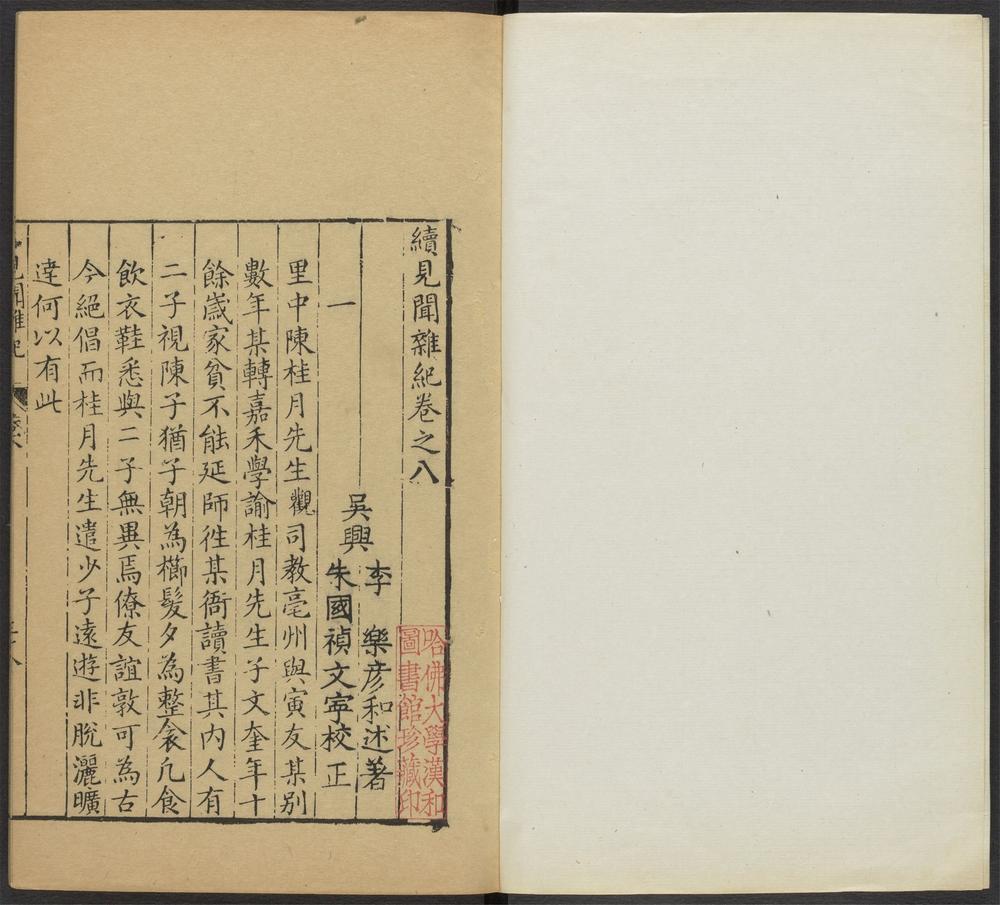 續見聞雜紀卷之八
吳興
李 樂彥和述著
朱國禎文寧校正
一
里中陳桂月先生觀司教亳州與寅友某別
數年某轉嘉禾學諭桂月先生子文奎年十
餘歲家貧不能延師徃某衙讀書其內人有
二子視陳子猶子朝為櫛髮夕為整衾凢食
飲衣鞋悉與二子無異焉僚友誼敦可為古
今絕倡而桂月先生遣少子遠遊非脫灑曠
達何以有此
見聞雜紀
哈佛大學漢和
圖書館珍藏印